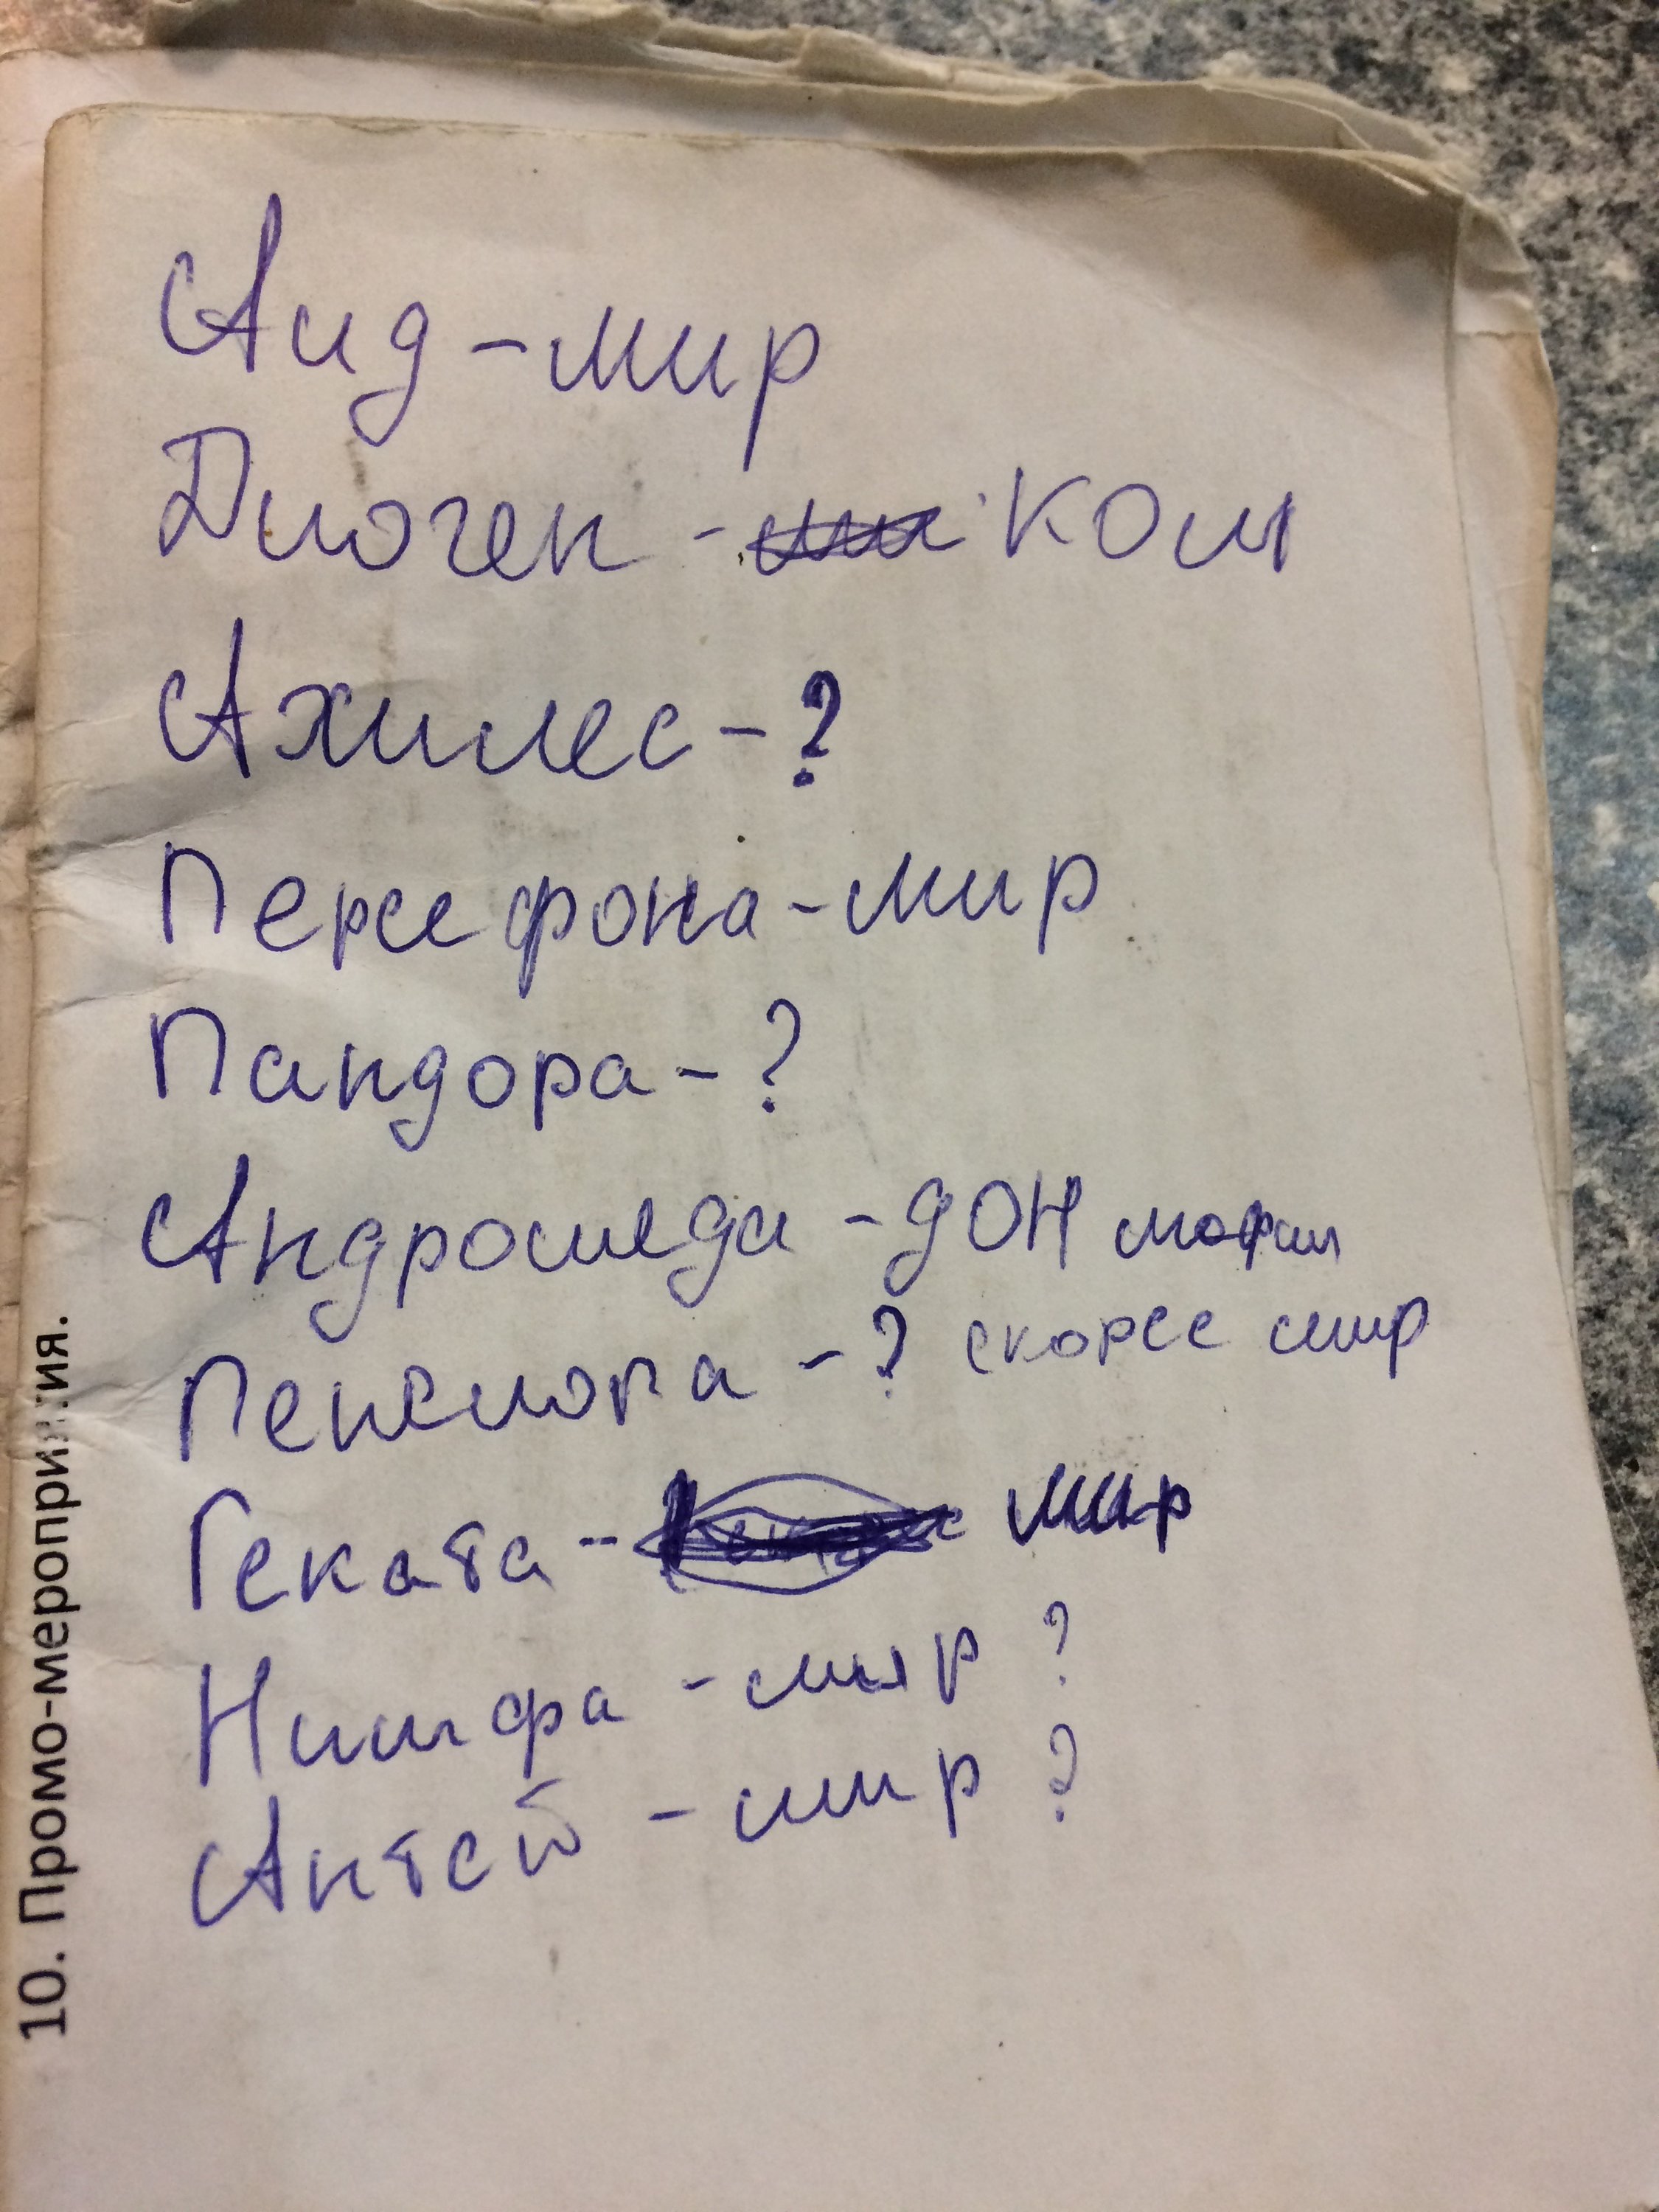 Аид - мир
Диоген - ком
Ахилес - ?
Персефона - мир
Пандора - ?
Андромеда - дон мафии
Пенелопа - ? скорее мир
Геката - мир
Нимфа - мир ?
Антей - мир ?
10. Промо-мероприятия.